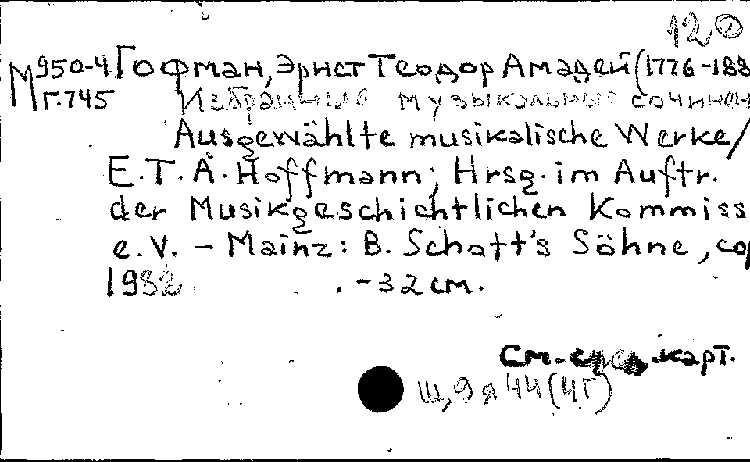 12
М 950-4 Гофман, Эрнст Теодор Амадей (1776-188
Г.745 Избранные музыкальные сочинен
Ausgewählte musikalische Werke/
E.T.A. Hoffmann; Hrsg. im Auftr.
der Musikgeschichtlichen Kommiss
e.V. – Mainz: B. Schott's Söhne, cop
1982 . – 32 см.
См. карт.
Щ,9я44(4Г)